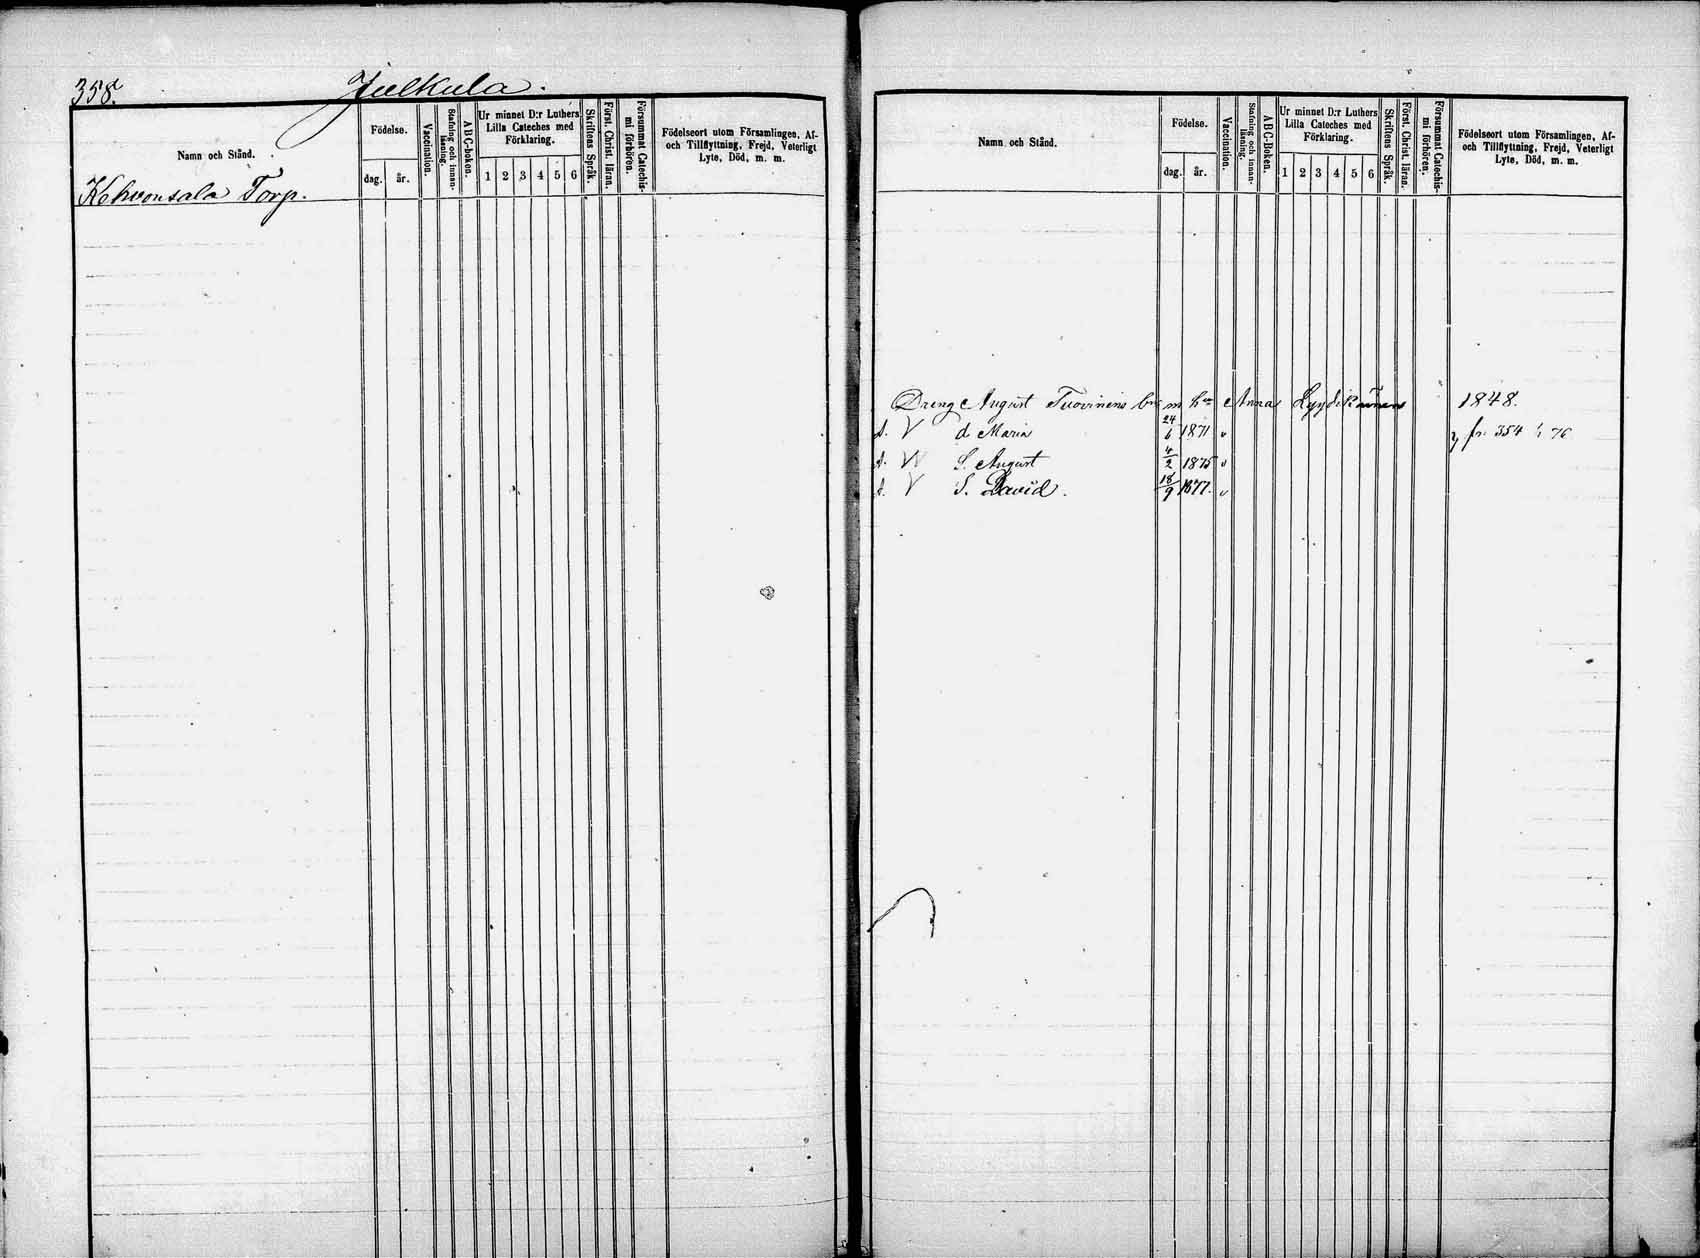 358. Julkula.
Namn och Stånd.
Födelse.
dag. år.
Vaccination.
Stafning och innan-
läsning.
ABC-boken.
Ur minnet D:r Luthers
Lilla Cateches med
Förklaring.
1 2 3 4 5 6
Skriftens Språk.
Först. Christ. läran.
Försummat Catechis-
mi förhören.
Födelseort utom Församlingen, Af-
och Tillflyttning, Frejd, Veterligt
Lyte, Död, m. m.
Kehvonsala Torp.
Namn och Stånd.
Födelse.
dag. år.
Vaccination.
Stafning och innan-
läsning.
ABC-Boken.
Ur minnet D:r Luthers
Lilla Cateches med
Förklaring.
1 2 3 4 5 6
Skriftens Språk.
Först. Christ. läran.
Försummat Catechis-
mi förhören.
Födelseort utom Församlingen, Af-
och Tillflyttning, Frejd, Veterligt
Lyte, Död, m. m.
Dreng August Tuovinens m hu Anna 1848.
V d Maria 24/6 1871 v fr. 354 76
S. August 4/2 1875 v
V S. David. 18/9 1877. v